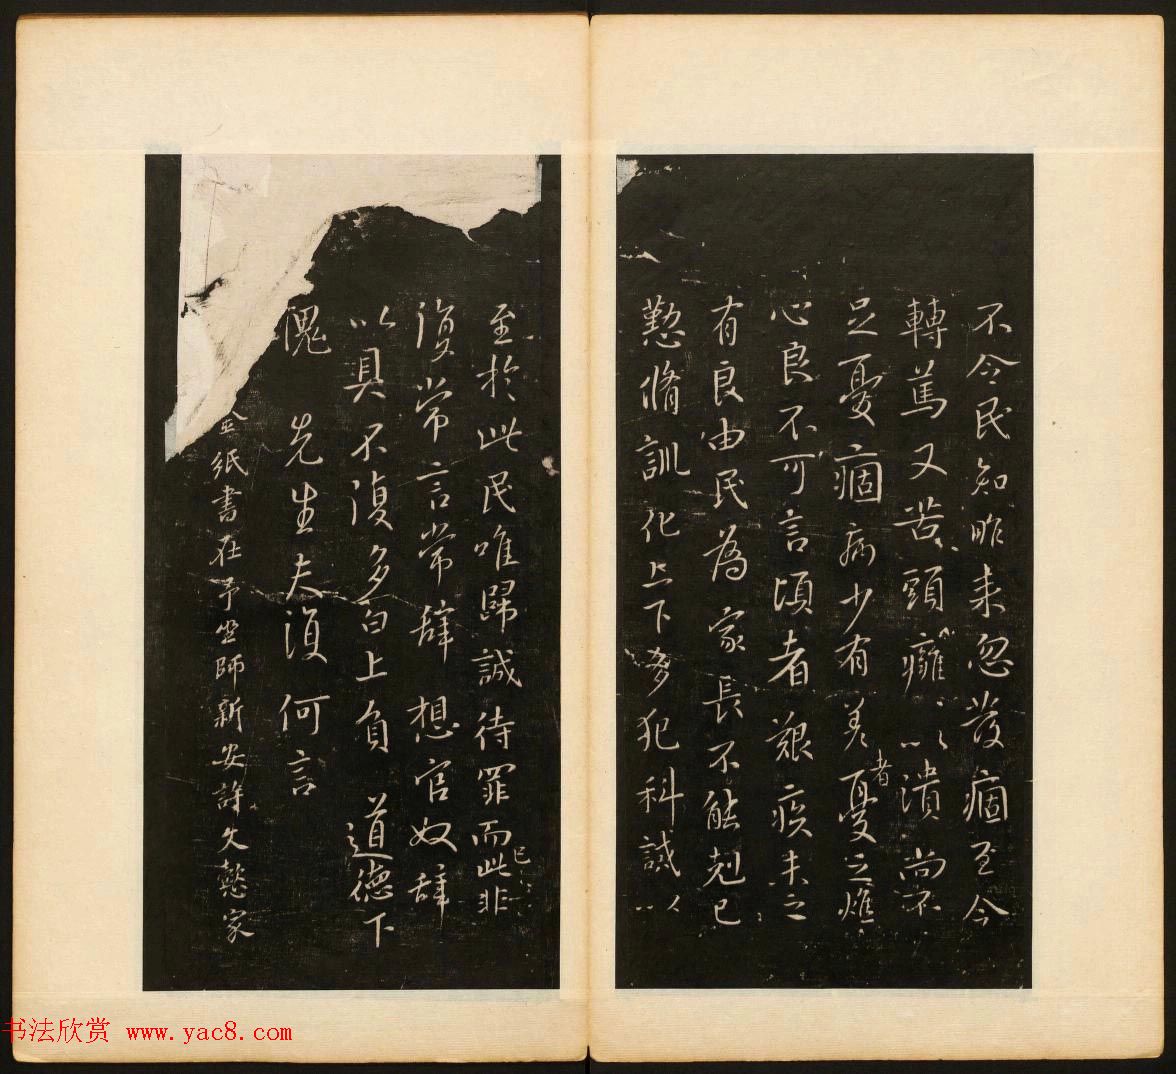 不令民知昨来忽發痼至今
轉篤又苦頭癰以潰尚不
足憂痼病少有差憂之燋
者
心良不可言頃者艱疾未之
有良由民為家長不能剋己
懃脩訓化上下多犯科誡以
至於此民唯歸誠待罪而此非
已
復常言常辭想官奴辭
以具不復多白上負道德下
愧先生夫復何言
紙書在予坐師新安許文懿家
书法欣赏 www.yac8.com